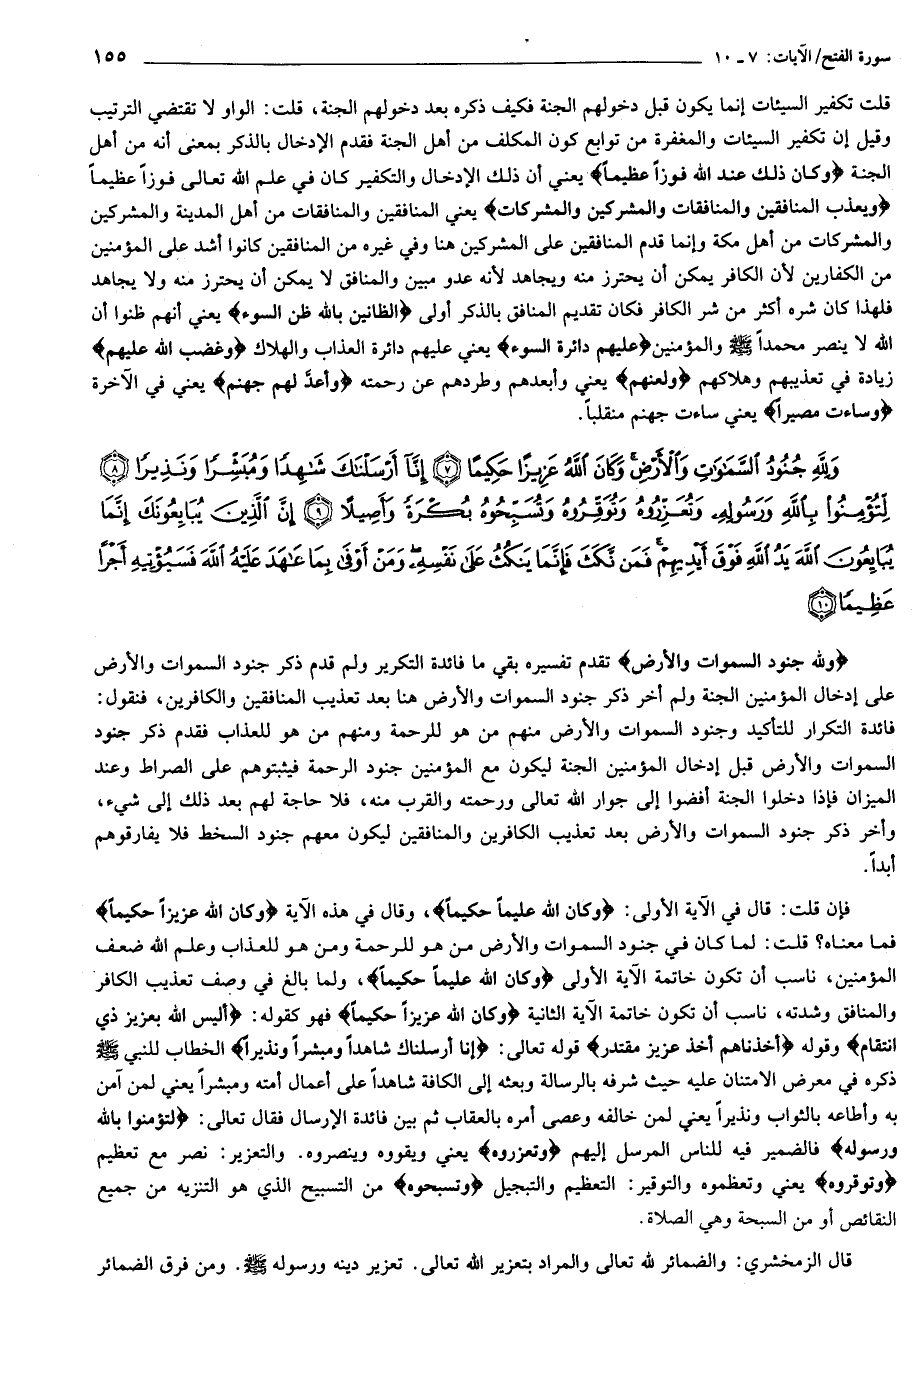 سورة الفتح/ الآيات: ٧ ـ ١٠ ١٥٥
قلت تكفير السيئات إنما يكون قبل دخولهم الجنة فكيف ذكره بعد دخولهم الجنة، قلت: الواو لا تقتضي الترتيب
وقيل إن تكفير السيئات والمغفرة من توابع كون المكلف من أهل الجنة فقدم الإدخال بالذكر بمعنى أنه من أهل
الجنة ﴿وكان ذلك عند الله فوزاً عظيماً﴾ يعني أن ذلك الإدخال والتكفير كان في علم الله تعالى فوزاً عظيماً
﴿ويعذب المنافقين والمنافقات والمشركين والمشركات﴾ يعني المنافقين والمنافقات من أهل المدينة والمشركين
والمشركات من أهل مكة وإنما قدم المنافقين على المشركين هنا وفي غيره من المنافقين كانوا أشد على المؤمنين
من الكفارين لأن الكافر يمكن أن يحترز منه ويجاهد لأنه عدو مبين والمنافق لا يمكن أن يحترز منه ولا يجاهد
فلهذا كان شره أكثر من شر الكافر فكان تقديم المنافق بالذكر أولى ﴿الظانين بالله ظن السوء﴾ يعني أنهم ظنوا أن
الله لا ينصر محمداً ﷺ والمؤمنين ﴿عليهم دائرة السوء﴾ يعني عليهم دائرة العذاب والهلاك ﴿وغضب الله عليهم﴾
زيادة في تعذيبهم وهلاكهم ﴿ولعنهم﴾ يعني وأبعدهم وطردهم عن رحمته ﴿وأعدَّ لهم جهنم﴾ يعني في الآخرة
﴿وساءت مصيراً﴾ يعني ساءت جهنم منقلباً.
وَلِلَّهِ جُنُودُ السَّمَٰوَٰتِ وَالْأَرْضِ ۚ وَكَانَ اللَّهُ عَزِيزًا حَكِيمًا ۝٧ إِنَّآ أَرْسَلْنَٰكَ شَٰهِدًا وَمُبَشِّرًا وَنَذِيرًا ۝٨
لِّتُؤْمِنُوا۟ بِاللَّهِ وَرَسُولِهِۦ وَتُعَزِّرُوهُ وَتُوَقِّرُوهُ وَتُسَبِّحُوهُ بُكْرَةً وَأَصِيلًا ۝٩ إِنَّ الَّذِينَ يُبَايِعُونَكَ إِنَّمَا
يُبَايِعُونَ اللَّهَ يَدُ اللَّهِ فَوْقَ أَيْدِيهِمْ ۚ فَمَن نَّكَثَ فَإِنَّمَا يَنكُثُ عَلَىٰ نَفْسِهِۦ ۖ وَمَنْ أَوْفَىٰ بِمَا عَٰهَدَ عَلَيْهُ اللَّهَ فَسَيُؤْتِيهِ أَجْرًا
عَظِيمًا ۝١٠
﴿ولله جنود السموات والأرض﴾ تقدم تفسيره بقي ما فائدة التكرير ولم قدم ذكر جنود السموات والأرض
على إدخال المؤمنين الجنة ولم أخر ذكر جنود السموات والأرض هنا بعد تعذيب المنافقين والكافرين، فنقول:
فائدة التكرار للتأكيد وجنود السموات والأرض منهم من هو للرحمة ومنهم من هو للعذاب فقدم ذكر جنود
السموات والأرض قبل إدخال المؤمنين الجنة ليكون مع المؤمنين جنود الرحمة فيثبتوهم على الصراط وعند
الميزان فإذا دخلوا الجنة أفضوا إلى جوار الله تعالى ورحمته والقرب منه، فلا حاجة لهم بعد ذلك إلى شيء،
وأخر ذكر جنود السموات والأرض بعد تعذيب الكافرين والمنافقين ليكون معهم جنود السخط فلا يفارقوهم
أبداً.
فإن قلت: قال في الآية الأولى: ﴿وكان الله عليماً حكيماً﴾، وقال في هذه الآية ﴿وكان الله عزيزاً حكيماً﴾
فما معناه؟ قلت: لما كان في جنود السموات والأرض من هو للرحمة ومن هو للعذاب وعلم الله ضعف
المؤمنين، ناسب أن تكون خاتمة الآية الأولى ﴿وكان الله عليماً حكيماً﴾، ولما بالغ في وصف تعذيب الكافر
والمنافق وشدته، ناسب أن تكون خاتمة الآية الثانية ﴿وكان الله عزيزاً حكيماً﴾ فهو كقوله: ﴿أليس الله بعزيز ذي
انتقام﴾ وقوله ﴿أخذناهم أخذ عزيز مقتدر﴾ قوله تعالى: ﴿إنا أرسلناك شاهداً ومبشراً ونذيراً﴾ الخطاب للنبي ﷺ
ذكره في معرض الامتنان عليه حيث شرفه بالرسالة وبعثه إلى الكافة شاهداً على أعمال أمته ومبشراً يعني لمن آمن
به وأطاعه بالثواب ونذيراً يعني لمن خالفه وعصى أمره بالعقاب ثم بين فائدة الإرسال فقال تعالى: ﴿لتؤمنوا بالله
ورسوله﴾ فالضمير فيه للناس المرسل إليهم ﴿وتعزروه﴾ يعني ويقووه وينصروه. والتعزير: نصر مع تعظيم
﴿وتوقروه﴾ يعني وتعظموه والتوقير: التعظيم والتبجيل ﴿وتسبحوه﴾ من التسبيح الذي هو التنزيه من جميع
النقائص أو من السبحة وهي الصلاة.
قال الزمخشري: والضمائر لله تعالى والمراد بتعزير الله تعالى. تعزير دينه ورسوله ﷺ. ومن فرق الضمائر